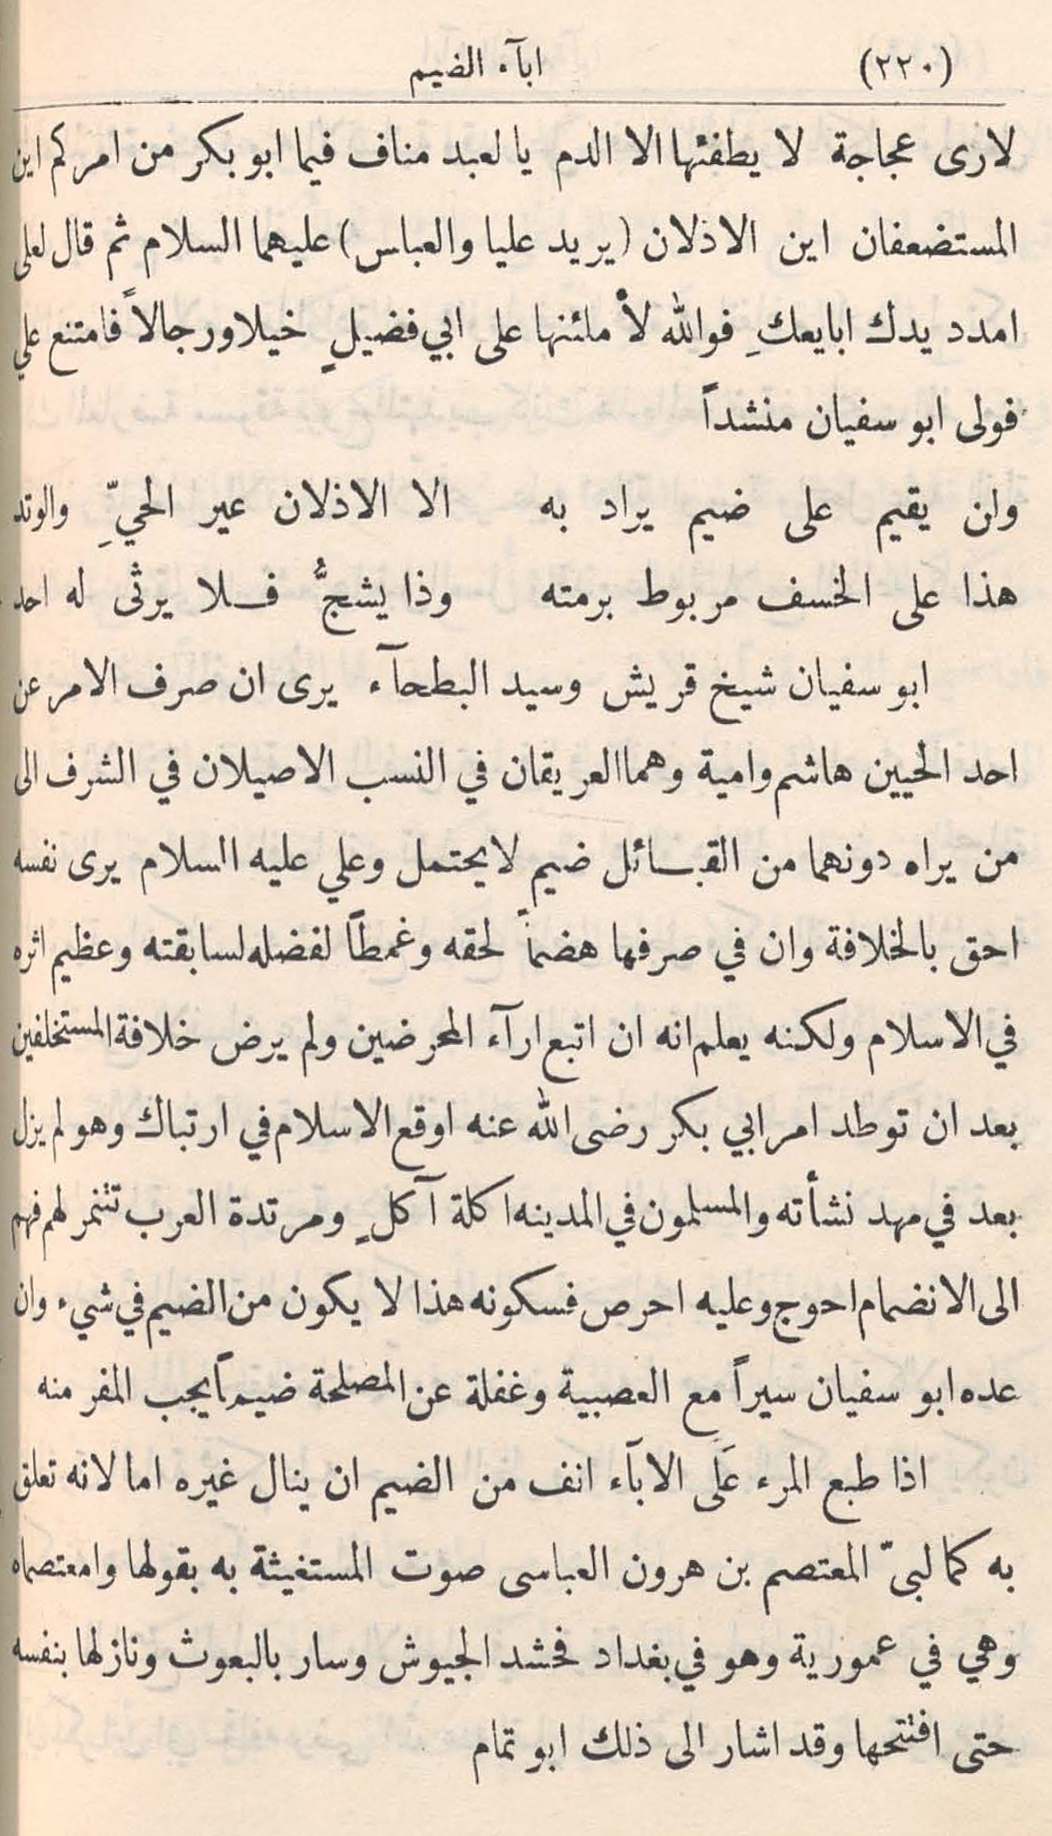 (٢٢٠) ابآء الضيم
لارى عجاجة لا يطفئها الا الدم يا لعبد مناف فيما ابو بكر من امركم اين
المستضعفان اين الاذلان (يريد عليا والعباس) عليهما السلام ثم قال لعلي
امدد يدك ابايعكِ فوالله لأ ملئنها على ابي فضيلٍ خيلا ورجالاً فامتنع علي
فولى ابو سفيان منشداً
ولن يقيم على ضيم يراد به الا الاذلان عير الحيِّ والوتد
هذا على الخسف مربوط برمته وذا يشجُّ فـلا يرثى له احد
ابو سفيان شيخ قريش وسيد البطحآء يرى ان صرف الامر عن
احد الحيين هاشم وامية وهما العريقان في النسب الاصيلان في الشرف الى
من يراه دونهما من القبـائل ضيم لا يحتمل وعلي عليه السلام يرى نفسه
احق بالخلافة وان في صرفها هضماً لحقه وغمطاً لفضله لسابقته وعظيم اثره
في الاسلام ولكنه يعلم انه ان اتبع ارآء المحرضين ولم يرض خلافة المستخلفين
بعد ان توطد امر ابي بكر رضى الله عنه اوقع الاسلام في ارتباك وهو لم يزل
بعد في مهد نشأته والمسلمون في المدينه اكلة آكلٍ ومرتدة العرب تتنمر لهم فهم
الى الانضمام احوج وعليه احرص فسكونه هذا لا يكون من الضيم في شيء وان
عده ابو سفيان سيراً مع العصبية وغفلة عن المصلحة ضيماً يجب المفر منه
اذا طبع المرء عَلَى الابآء انف من الضيم ان ينال غيره اما لانه تعلق
به كما لبىّ المعتصم بن هرون العباسى صوت المستغيثة به بقولها وامعتصماه
وهي في عمورية وهو في بغداد فحشد الجيوش وسار بالبعوث ونازلها بنفسه
حتى افتتحها وقد اشار الى ذلك ابو تمام